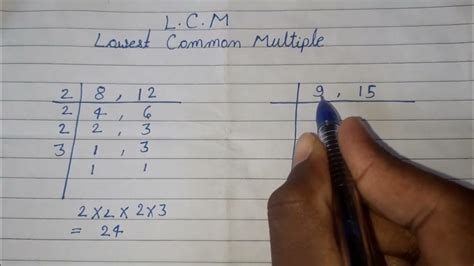 L.C.M
Lowest Common Multiple
2 8, 12
2 4, 6
2 2, 3
3 1, 3
1 1
2 × 2 × 2 × 3
= 24
9, 15